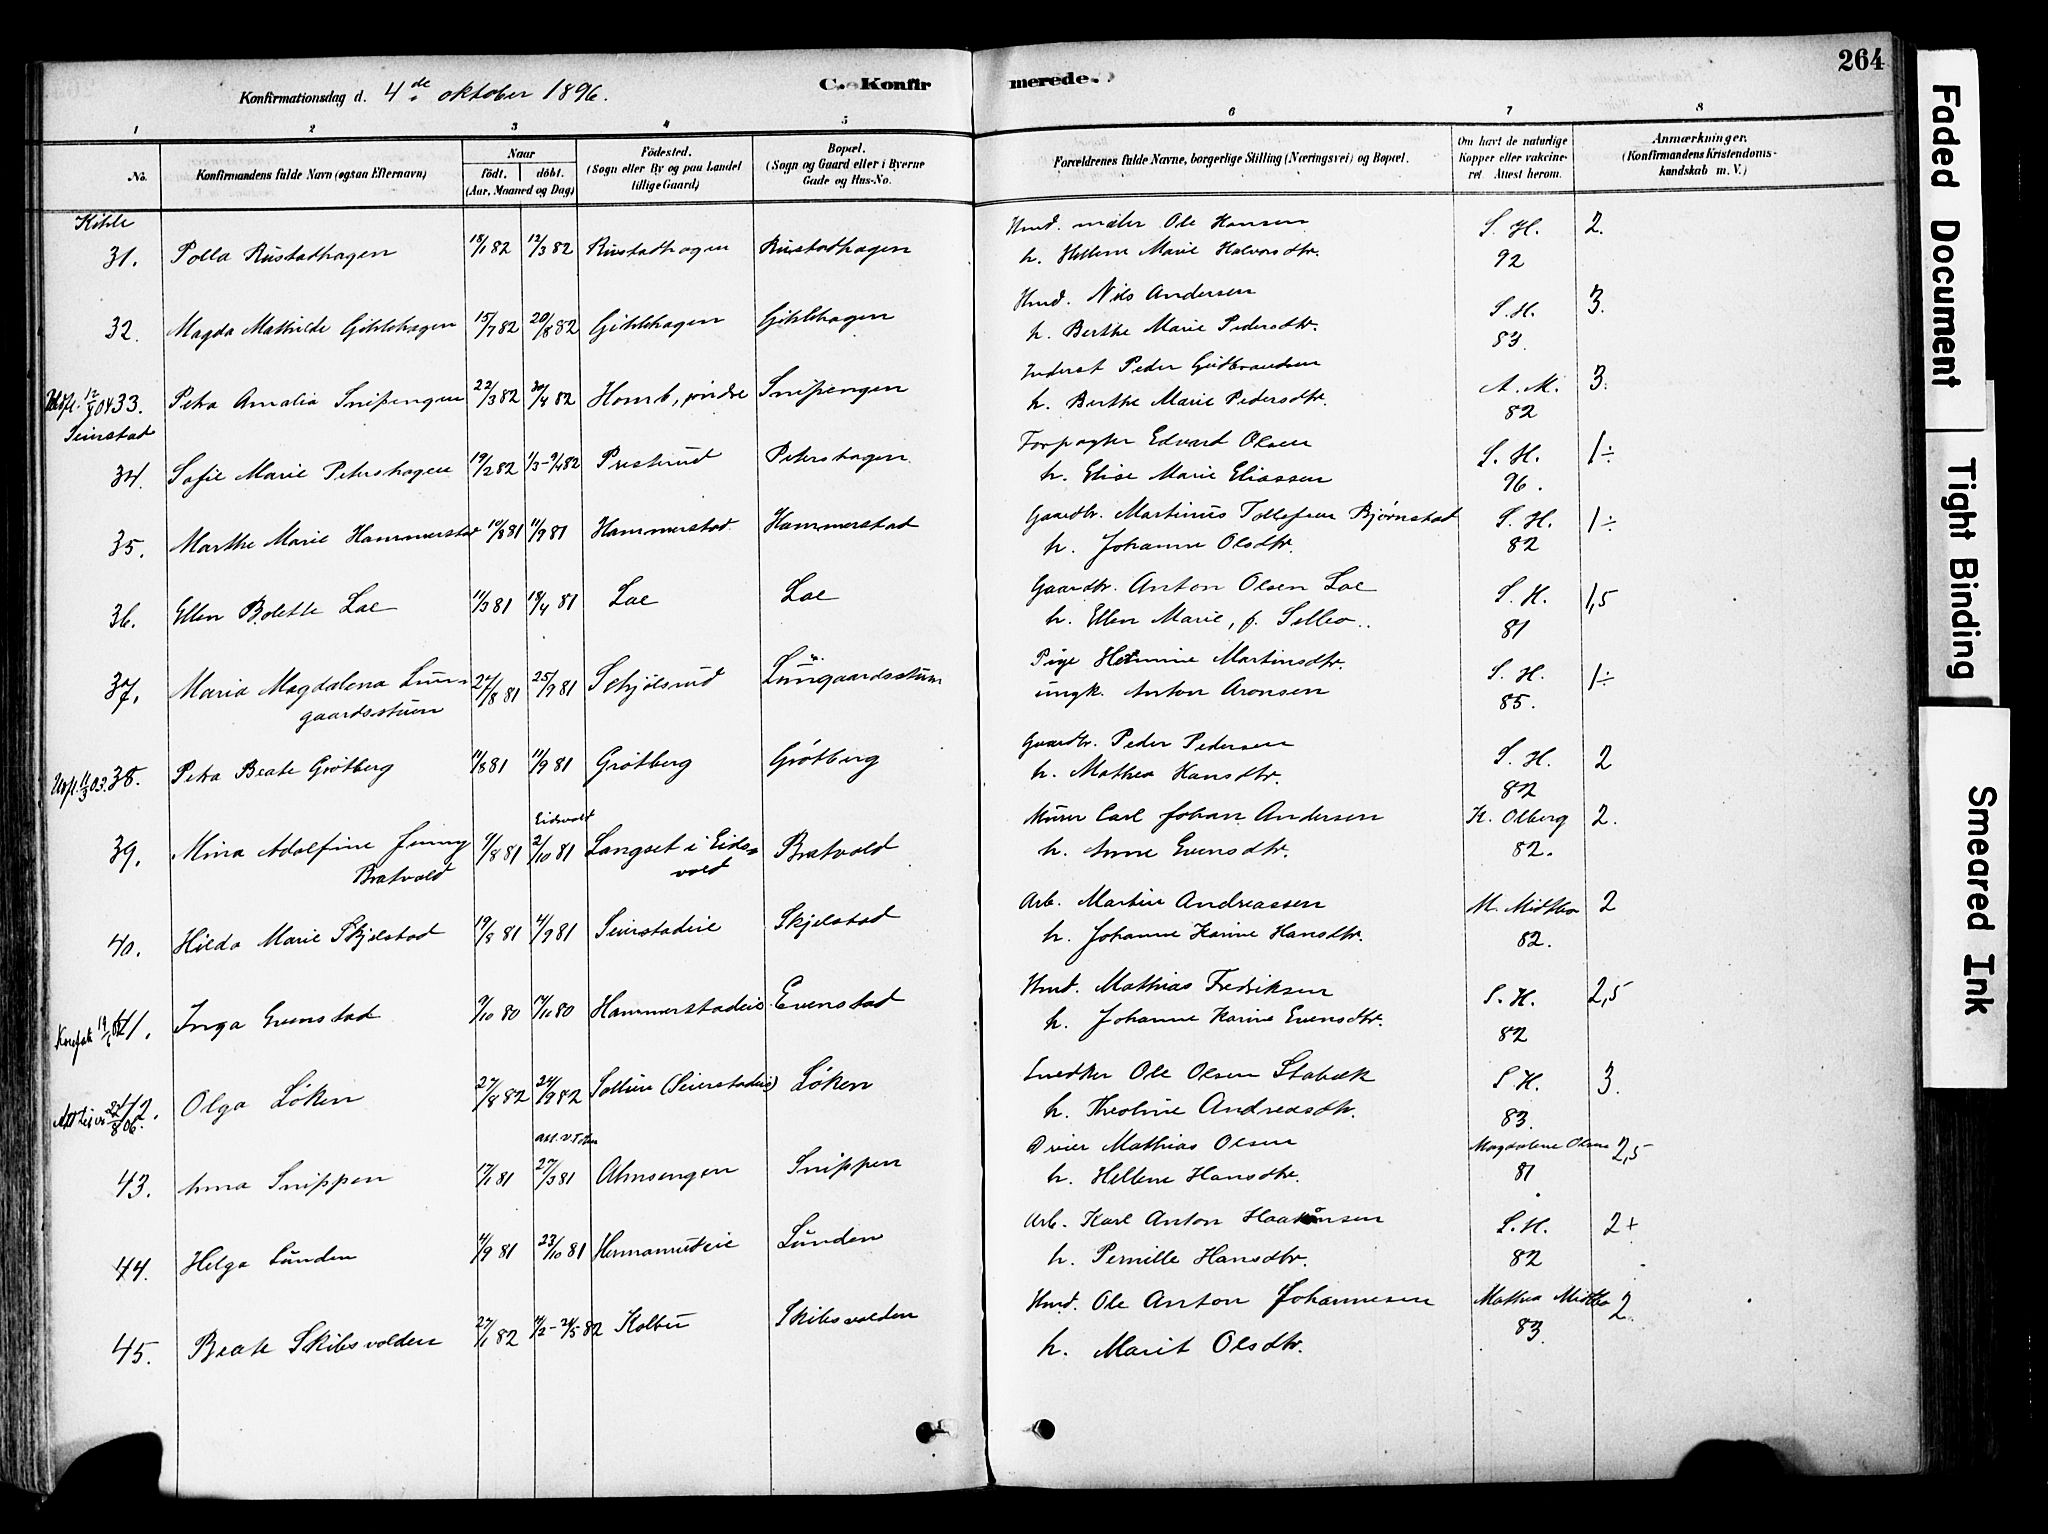 264
Konfirmationsdag d. 4de oktober 1896.
C. Konfirmerede.
1 2 3 4 5 6 7 8
No.
Konfirmandens fulde Navn (ogsaa Efternavn)
Naar
födt. döbt.
(Aar, Maaned og Dag)
Födested.
(Sogn eller By og paa Landet
tillige Gaard)
Bopæl.
(Sogn og Gaard eller i Byerne
Gade og Hus-No.
Forældrenes fulde Navne, borgerlige Stilling (Næringsvei) og Bopæl.
Om havt de naturlige
Kopper eller vakcine-
ret. Attest herom.
Anmærkninger.
(Konfirmandens Kristendoms-
kundskab m. V.)
Kihle
31. Polla Rustadhagen 18/1 82 12/3 82 Rustadhagen Rustadhagen Hmd. maler Ole Hansen S. H. 2.
h. Hellene Marie Halvorsdtr. 92
32. Magda Mathilde Gihlehagen 15/7 82 20/8 82 Gihlehagen Gihlehagen Hmd. Nils Andersen S. H. 3.
h. Berthe Marie Pedersdtr. 83.
33. Petra Amalia Snipengen 22/3 82 30/4 82 Homb, søndre Snipengen Inderst Peder Gudbrandsen A. M. 3.
h. Berthe Marie Pedersdtr. 82
Seierstad
34. Sofie Marie Petershagen 19/2 82 1/3-9/4 82 Presterud Petershagen Forpagter Edvard Olsen S. H. 1÷
h. Elise Marie Eliassen 96.
35. Marthe Marie Hammerstad 10/8 81 11/9 81 Hammerstad Hammerstad Gaardbr. Martinus Tollefsen Bjørnstad S. H. 1÷
h. Johanne Olsdtr. 82
36. Ellen Bolette Loe 11/3 81 18/4 81 Loe Loe Gaardbr. Anton Olsen Loe S. H. 1,5
h. Ellen Marie, f. Sillebo.. 81
37. Maria Magdalena Lunn- 24/8 81 25/9 81 Schjølsrud Lunngaardsstuen Pige Hermine Martinsdtr. S. H. 1÷
gaardsstuen ungk. Anton Aronsen 85.
Utfl. 11/3 03. 38. Petra Beate Grøtberg 11/8 81 11/9 81 Grøtberg Grøtberg Gaardbr. Peder Pedersen S. H. 2
h. Mathea Hansdtr. 82
39. Mina Adolfine Jenny 9/8 81 Eidsvold 2/10 81 Langset i Eids- Bratvold Murer Carl Johan Andersen K. Olberg 2.
Bratvold vold h. Anne Evensdtr. 82.
40. Hilda Marie Skjelstad 19/8 81 4/9 81 Seierstadeie Skjelstad Arb. Martin Andreassen M. Midtbo 2
h. Johanne Karine Hansdtr. 82.
41. Inga Evenstad 9/10 80 17/10 80 Hammerstadeie Evenstad Hmd. Mathias Fredriksen S. H. 2,5
h. Johanne Karine Evensdtr. 82
42. Olga Løken 27/8 82 24/9 82 Sollien (Seierstadeie) Løken Snedker Ole Olsen Stabæk S. H. 3.
h. Theoline Andreasdtr. 83.
43. Anna Snippen 17/1 81 27/3 81 Almsengen Snippen Driver Mathias Olsen Magdalene Olsen 2,5
h. Hellene Hansdtr. 81
44. Helga Lunden 4/9 81 23/10 81 Hermanrudeie Lunden Arb. Karl Anton Haakonsen S. H. 2+
h. Pernille Hansdtr. 82
45. Beate Skibsvolden 27/1 82 14/2-24/5 82 Kolbu Skibsvolden Hmd. Ole Anton Johannesen Mathea Midtbo 2.
h. Marit Olsdtr. 83.
Faded Document
Tight Binding
Smeared Ink